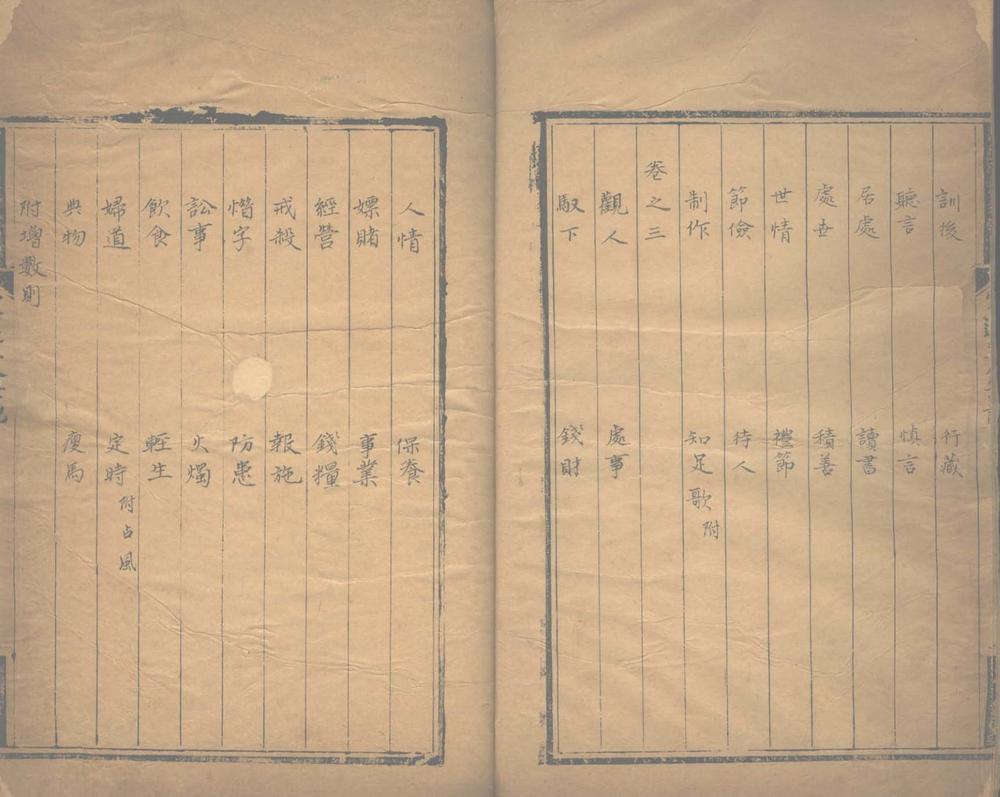 訓後　行藏
聽言　慎言
居處　讀書
處世　積善
世情　禮節
節儉　待人
制作　知足歌附
卷之三
觀人　處事
馭下　錢財
人情　保養
嫖賭　事業
經營　錢糧
戒殺　報施
惜字　防患
訟事　火燭
飲食　輕生
婦道　定時附占風
典物　瘦馬
附增數則